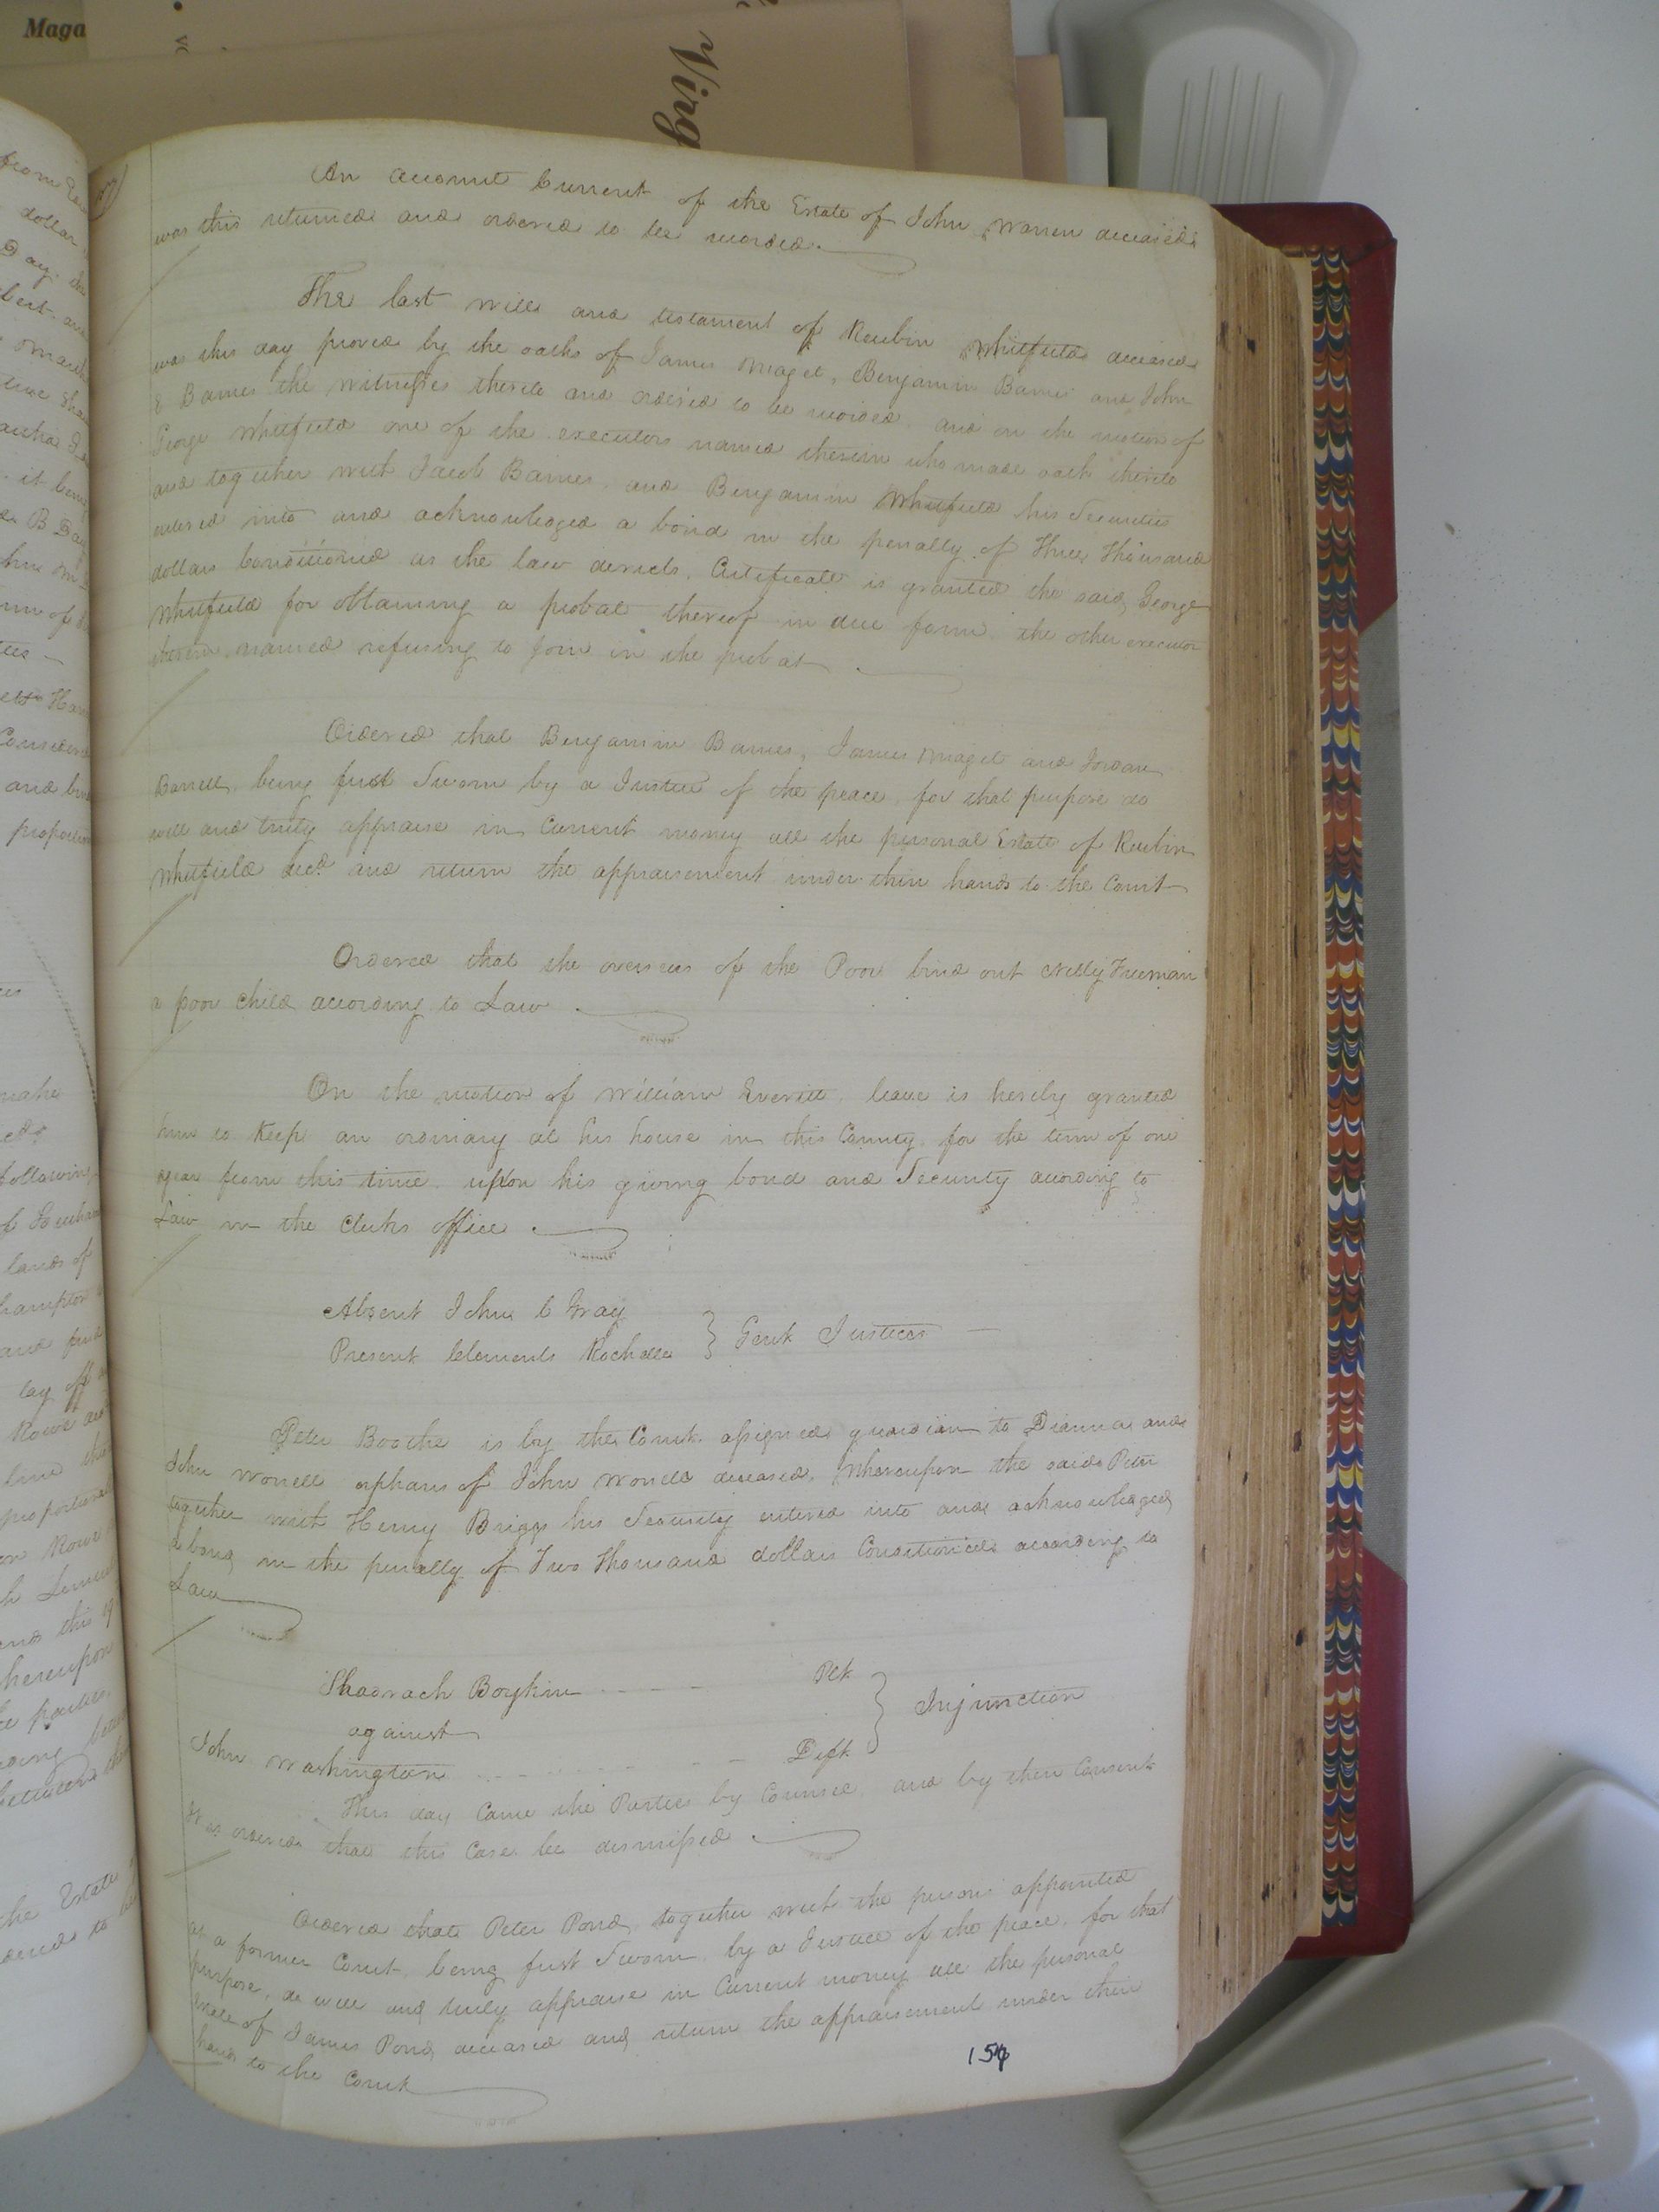 Maga
Virg
An account Current of the Estate of John Warren deceased
was this returned and ordered to be recorded.
The last will and testament of Reubin Whitfield deceased
was this day proved by the oaths of James Maget, Benjamin Barnes and John
E Barnes the witnesses thereto and ordered to be recorded. and on the motion of
George Whitfield one of the executors named therein who made oath thereto
and together with Jacob Barnes, and Benjamin Whitfield his Securities
entered into and acknowledged a bond in the penalty of Three Thousand
dollars conditioned as the law directs. Certificate is granted the said George
Whitfield for obtaining a probat thereof in due form. the other executor
therein named refusing to join in the probat
Ordered that Benjamin Barnes, James Maget and Jordan
Barrett, being first Sworn by a Justice of the peace, for that purpose do
well and truly appraise in Current money all the personal Estate of Reubin
Whitfield decd. and return the appraisement under their hands to the Court
Ordered that the overseers of the Poor bind out Nelly Freeman
a poor child according to Law.
On the motion of William Everitt, leave is hereby granted
him to Keep an ordinary at his house in this County, for the term of one
year from this time, upon his giving bond and Security according to
Law in the Clerks office.
Absent John C Gray
Present Clements Rochelle } Gent Justices
Peter Boothe is by the Court assigned guardian to Dianna and
John Worrell orphans of John Worrell deceased, Whereupon the said Peter
together with Henry Briggs his Security entered into and acknowledged
a bond in the penalty of Two Thousand dollars Conditioned according to
Law
Shadrach Boykin Plt
against } Injunction
John Washington Deft
This day Came the Parties by Counsel, and by their Consent
It is ordered that this Case be dismissed.
Ordered that Peter Pond together with the persons appointed
at a former Court, being first Sworn, by a Justice of the peace, for that
purpose, do well and truly appraise in Current money all the personal
Estate of James Pond deceased and return the appraisement under their
hands to the Court
154